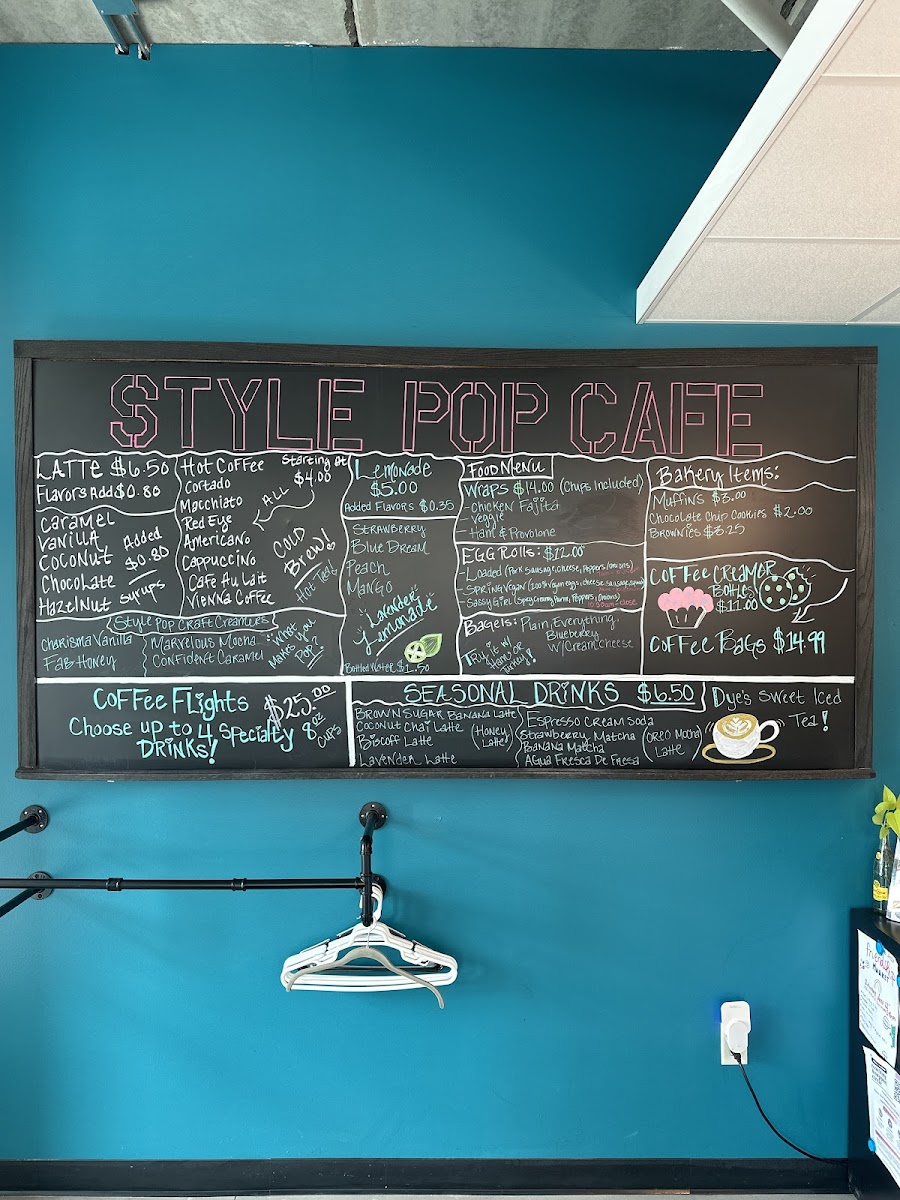 STYLE POP CAFE
LATTE $6.50
Flavors Add $0.80
Caramel
Vanilla
Coconut
Chocolate
Hazelnut
Added
$0.80
Syrups
Hot Coffee
Cortado
Macchiato
Red Eye
Americano
Cappuccino
Cafe Au Lait
Vienna Coffee
Starting at
$4.00
ALL
COLD
Brew!
Hot Tea!
Style Pop Craft Creamers
Charisma Vanilla
Fab Honey
Marvelous Mocha
Confident Caramel
What
Makes You
Pop?
Lemonade
$5.00
Added Flavors $0.35
Strawberry
Blue Dream
Peach
Mango
Lavender
Lemonade
Bottled Water $1.50
Food Menu
Wraps $14.00 (Chips Included)
- Chicken Fajita
- Veggie
- Ham & Provolone
EGG Rolls: $12.00
- Loaded (Pork Sausage, cheese, Peppers, onions)
- Spring Vegan (100% Vegan eggs, cheese, sausage,
- Sassy Girl (Spicy
Bagels: Plain, Everything,
Blueberry
w/Cream Cheese
Try it w/
Ham or
Turkey!!
Bakery Items:
Muffins $3.00
Chocolate Chip Cookies $2.00
Brownies $3.25
Coffee Creamer
Bottles
$11.00
Coffee Bags $14.99
Coffee Flights $25.00
Choose up to 4 Specialty 8oz
Drinks!
Cups
SEASONAL DRINKS $6.50
Brown Sugar Banana Latte
Coconut Chai Latte
Biscoff Latte
Lavender Latte
(Honey
Latte)
Espresso Cream Soda
Strawberry Matcha
Banana Matcha
Agua Fresca De Fresa
(Oreo Mocha
Latte)
Dye's Sweet Iced
Tea!